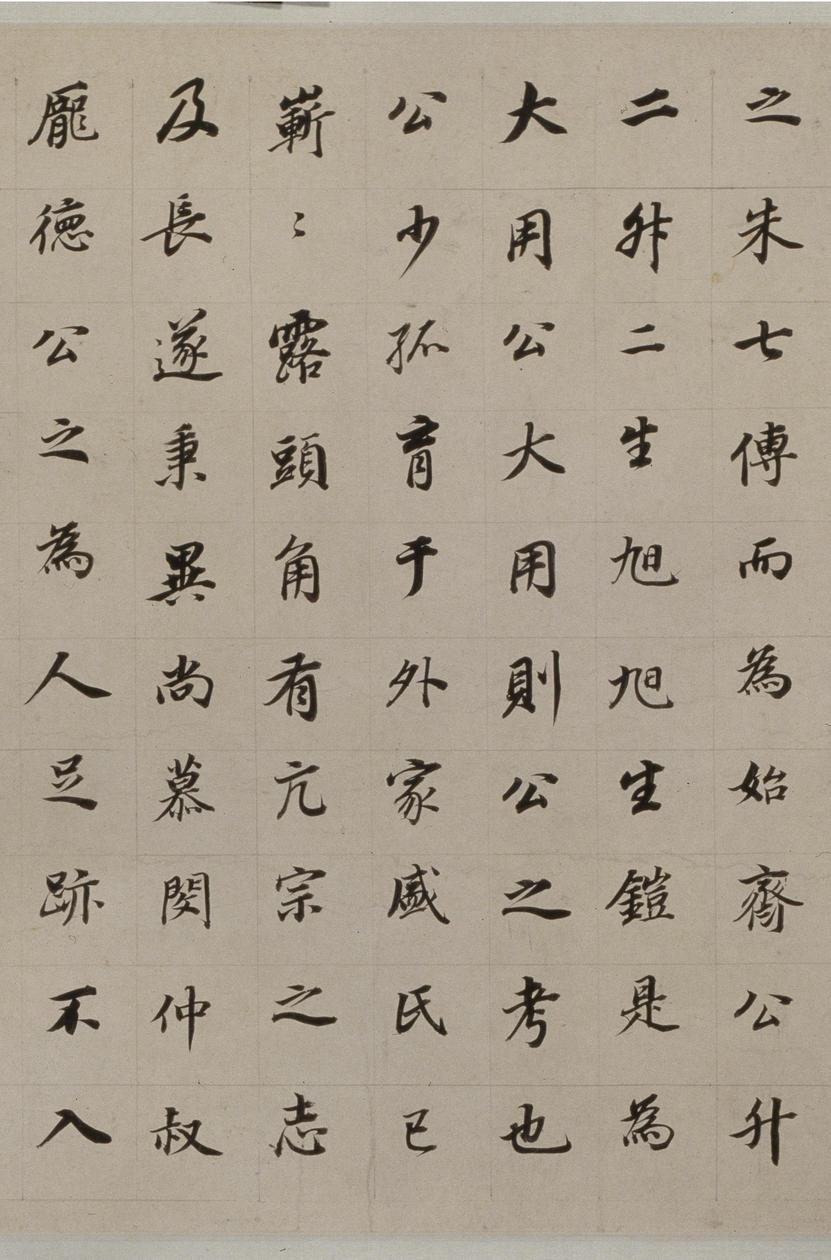 之朱七傳而為始齊公升
二升二生旭旭生鎧是為
大用公大用則公之考也
公少孤育于外家戚氏已
嶄〻露頭角有亢宗之志
及長遂秉異尚慕閔仲叔
龐德公之為人足跡不入